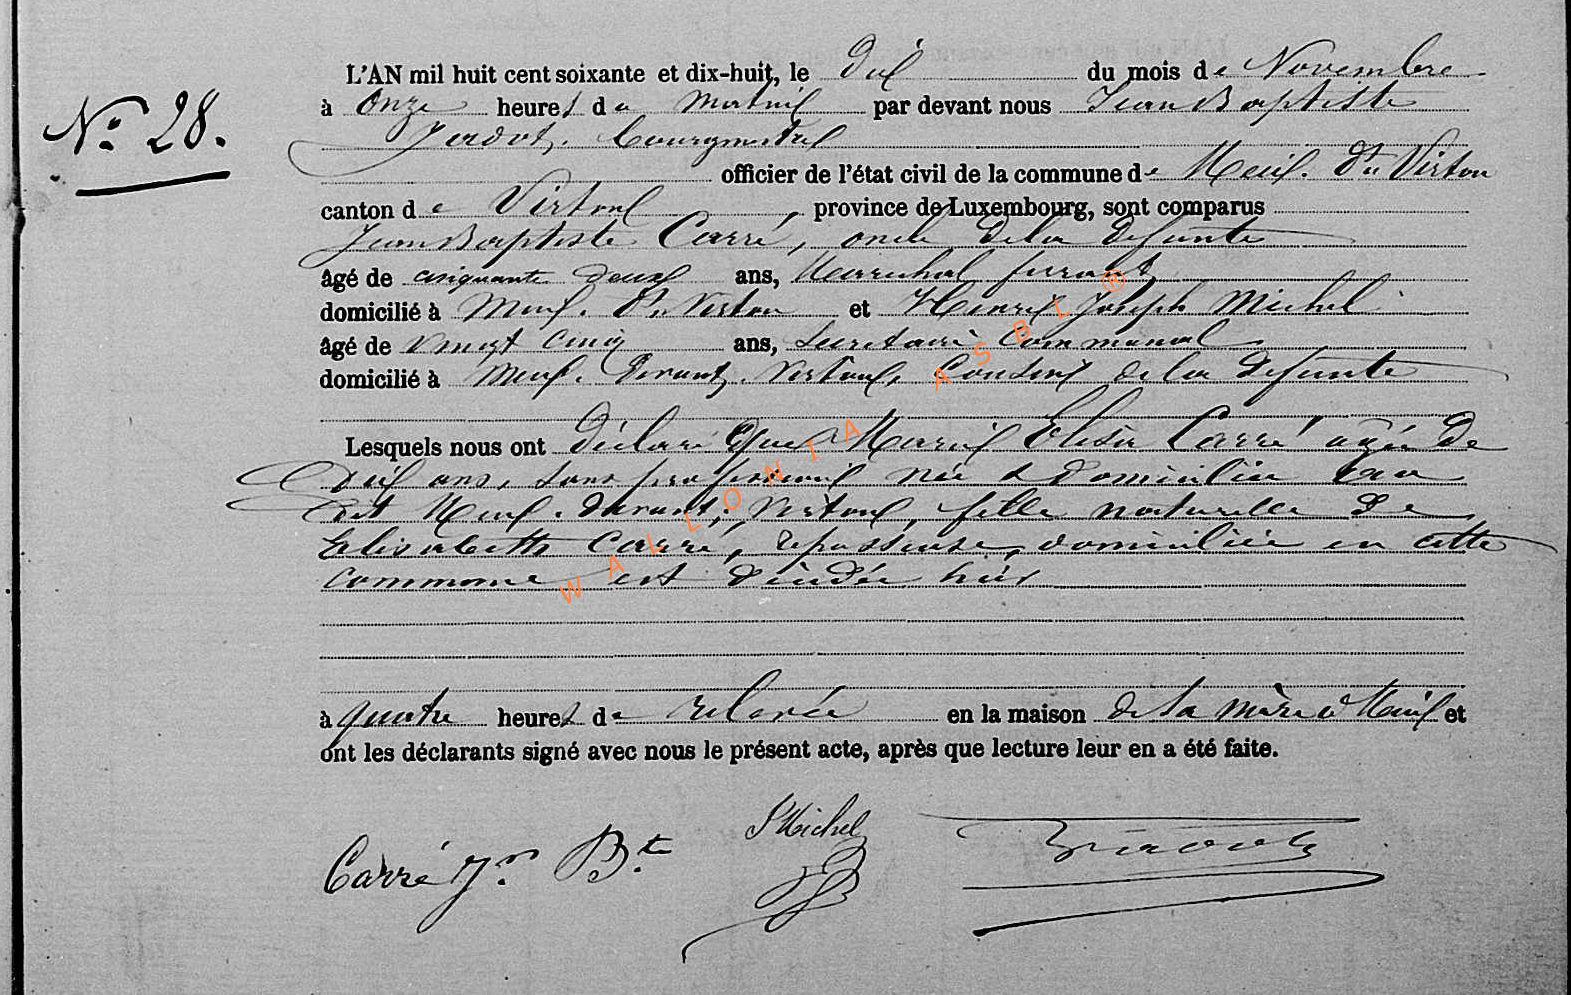 L'AN mil huit cent soixante et dix-huit, le Dix du mois de Novembre
N° 28.
à Onze heures du matin par devant nous Jean Baptiste
Jadot, bourgmestre
officier de l'état civil de la commune de Meix-dt Virton
canton de Virton province de Luxembourg, sont comparus
Jean Baptiste Carré, oncle de la défunte
âgé de cinquante deux ans, Maréchal ferrant
domicilié à Meix-dt Virton et Henri Joseph Michel
âgé de vingt cinq ans, Secrétaire communal
domicilié à Meix-devant-Virton, Cousin de la défunte
Lesquels nous ont déclaré que Marie Elisa Carré âgée de
Dix ans, sans profession née & domiciliée au
dit Meix-devant-Virton, fille naturelle de
Elisabeth Carré, repasseuse, domiciliée en cette
commune est décédée hier
à quatre heures de relevée en la maison de sa mère à Meix et
ont les déclarants signé avec nous le présent acte, après que lecture leur en a été faite.
Carré Jn Bte
Michel
WALLONIA ASBL ®